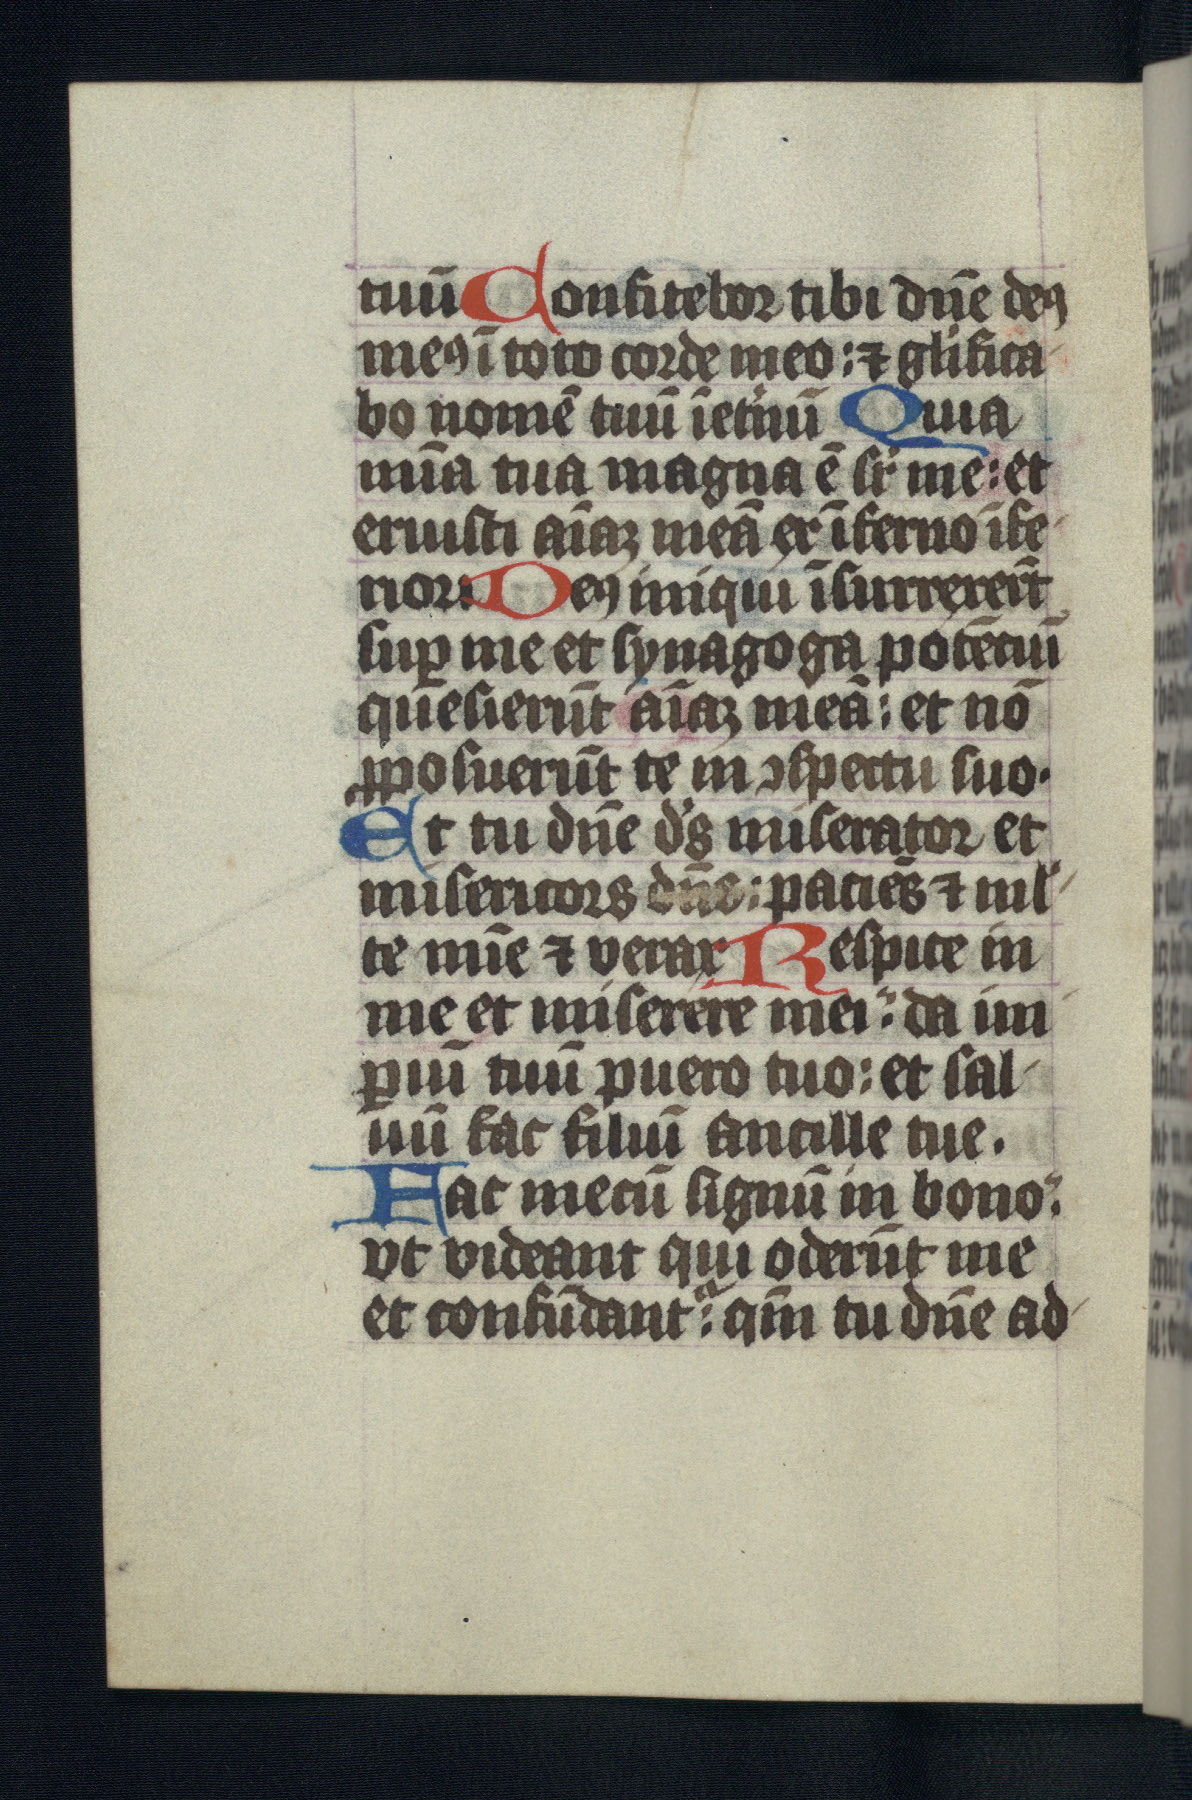 tuū Confitebor tibi dn̄e deꝰ
meꝰ ī toto corde meo : ⁊ gl'ifica-
bo nomē tuū īet'nū Quia
mīa tua magna ē sr̄ me : et
eruisti aīaꝫ meā ex īferno īfe-
riori Deꝰ iniqui īsurrexer̄t
suꝑ me et synagoga potētiū
quesierūt aīaꝫ meā : et nō
ꝓposuerūt te in ↄspectu suo.
Et tu dn̄e d's miserator et
misericors dn̄e : paciēs ⁊ ml'-
te mīe ⁊ verax Respice in
me et miserere mei : da im-
ꝑiū tuū puero tuo : et sal-
uū fac filiū ancille tue.
Fac mecū signū in bono :
vt videant qui oderūt me
et confūdant' : qm̄ tu dn̄e ad-